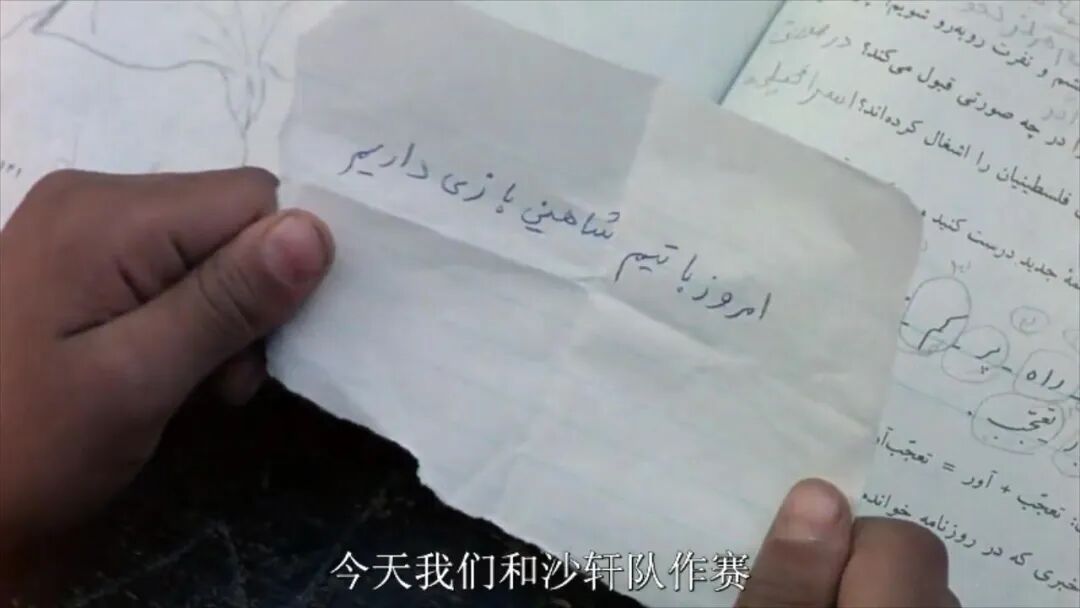 امروز با تیم شاهین بازی داریم
شم و نفرت روبه‌رو شویم؟
را در چه صورتی قبول می‌کند؟ در
فلسطینیان را اشغال کرده‌اند؟ اسرائیل
جدید درست کنید
راه - پر - کم
تعجّب
تعجّب + آور = تعجّب‌آ
خبری که در روزنامه خوانده
今天我们和沙轩队作赛